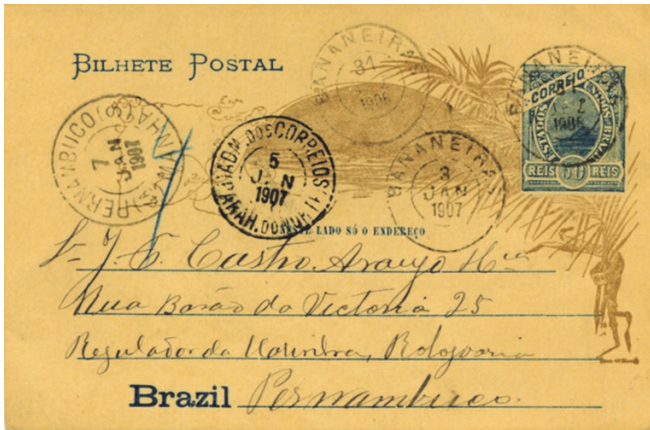 BILHETE POSTAL
BANANEIRAS
31
1906
BANANEIRAS
1906
CORREIO
ESTADOS UNIDOS DO BRAZIL
REIS 50 REIS
PERNAMBUCO
7
JAN
1907
ADM. DOS CORREIOS
5
JAN
1907
PARAH. DO NOR
BANANEIRAS
3
JAN
1907
NESTE LADO SÓ O ENDEREÇO
Sr J. F. Castro Araujo & Cia
Rua Barão da Victoria 25
Regulador da Marinha, Relojoaria
Brazil Pernambuco